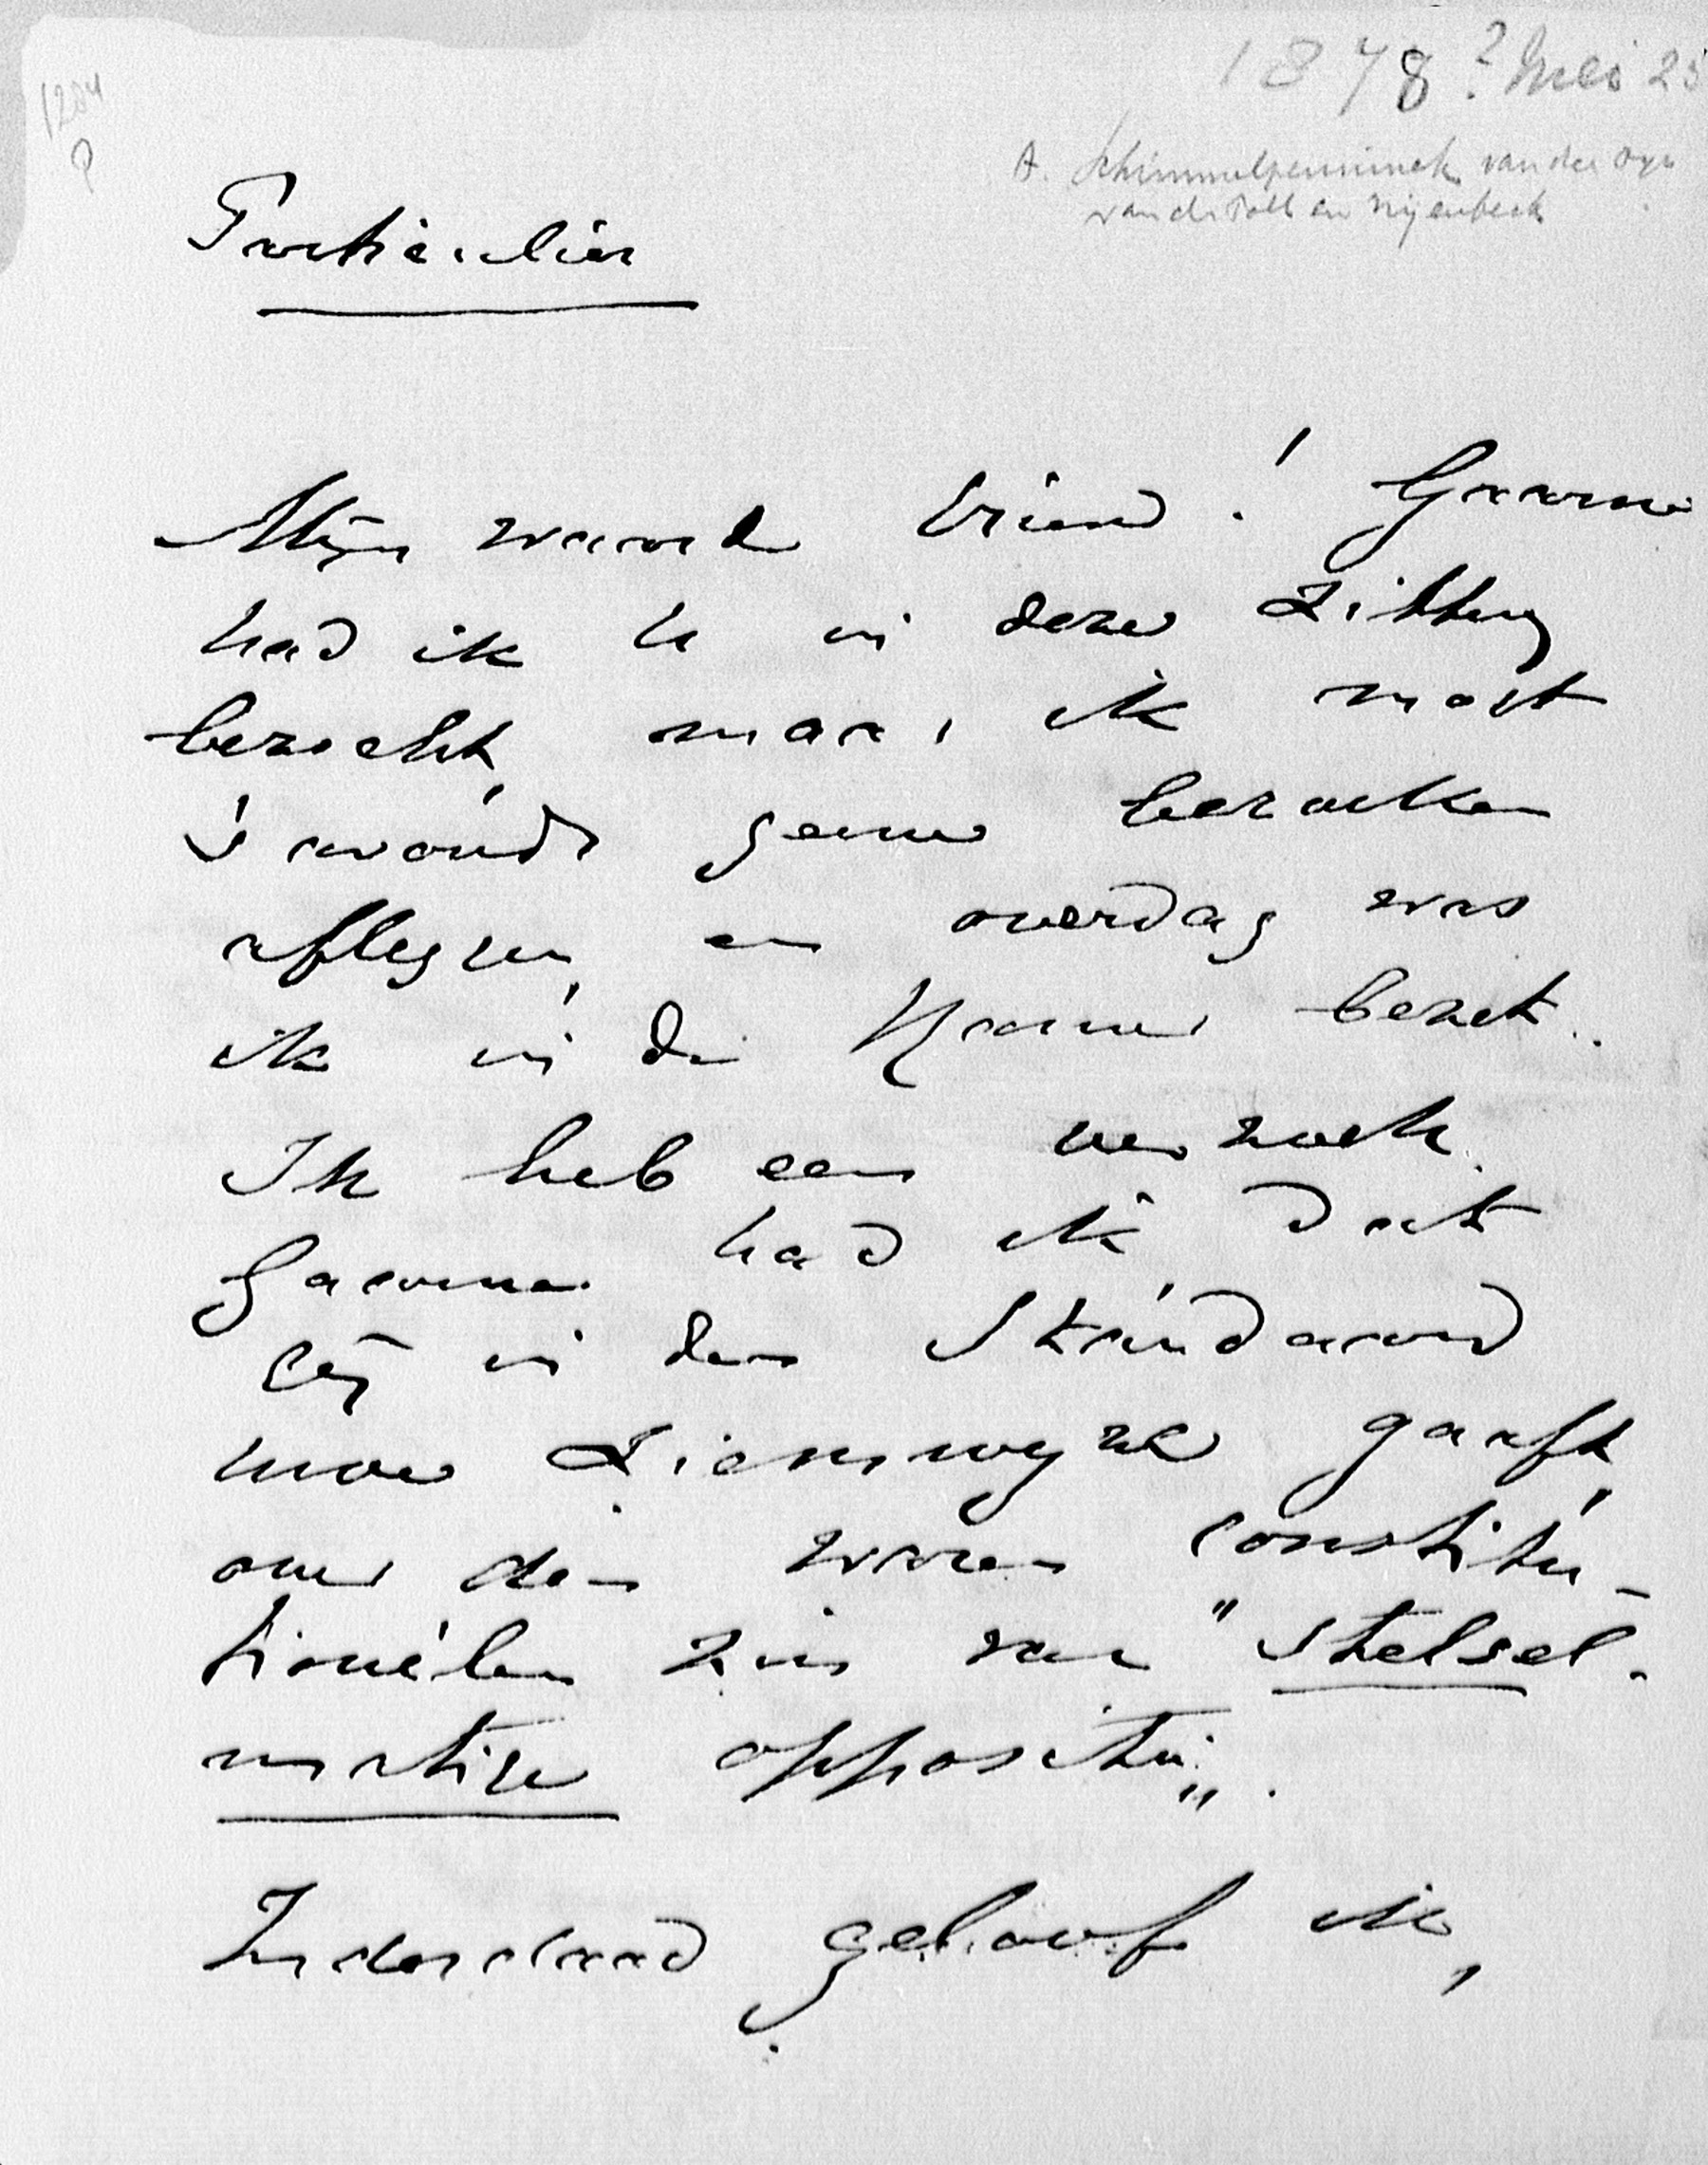 1204
P
1878? Mei 25
A. Schimmelpenninck van der Oye
van de Poll en Nijenbeek
Particulier
Mijn waarde Vriend! Gaarne
had ik U in deze zitting
bezocht, maar ik mogt
's avonds geene bezoeken
afleggen, en overdag was
ik in de Kamer bezet.
Ik heb een verzoek.
Gaarne had ik dat
Gij in den Standaard
uwe zienswyze gaaft,
over den waren constitu-
tionélen zin van "stelsel-
matige oppositie".
Inderdaad geloof ik,